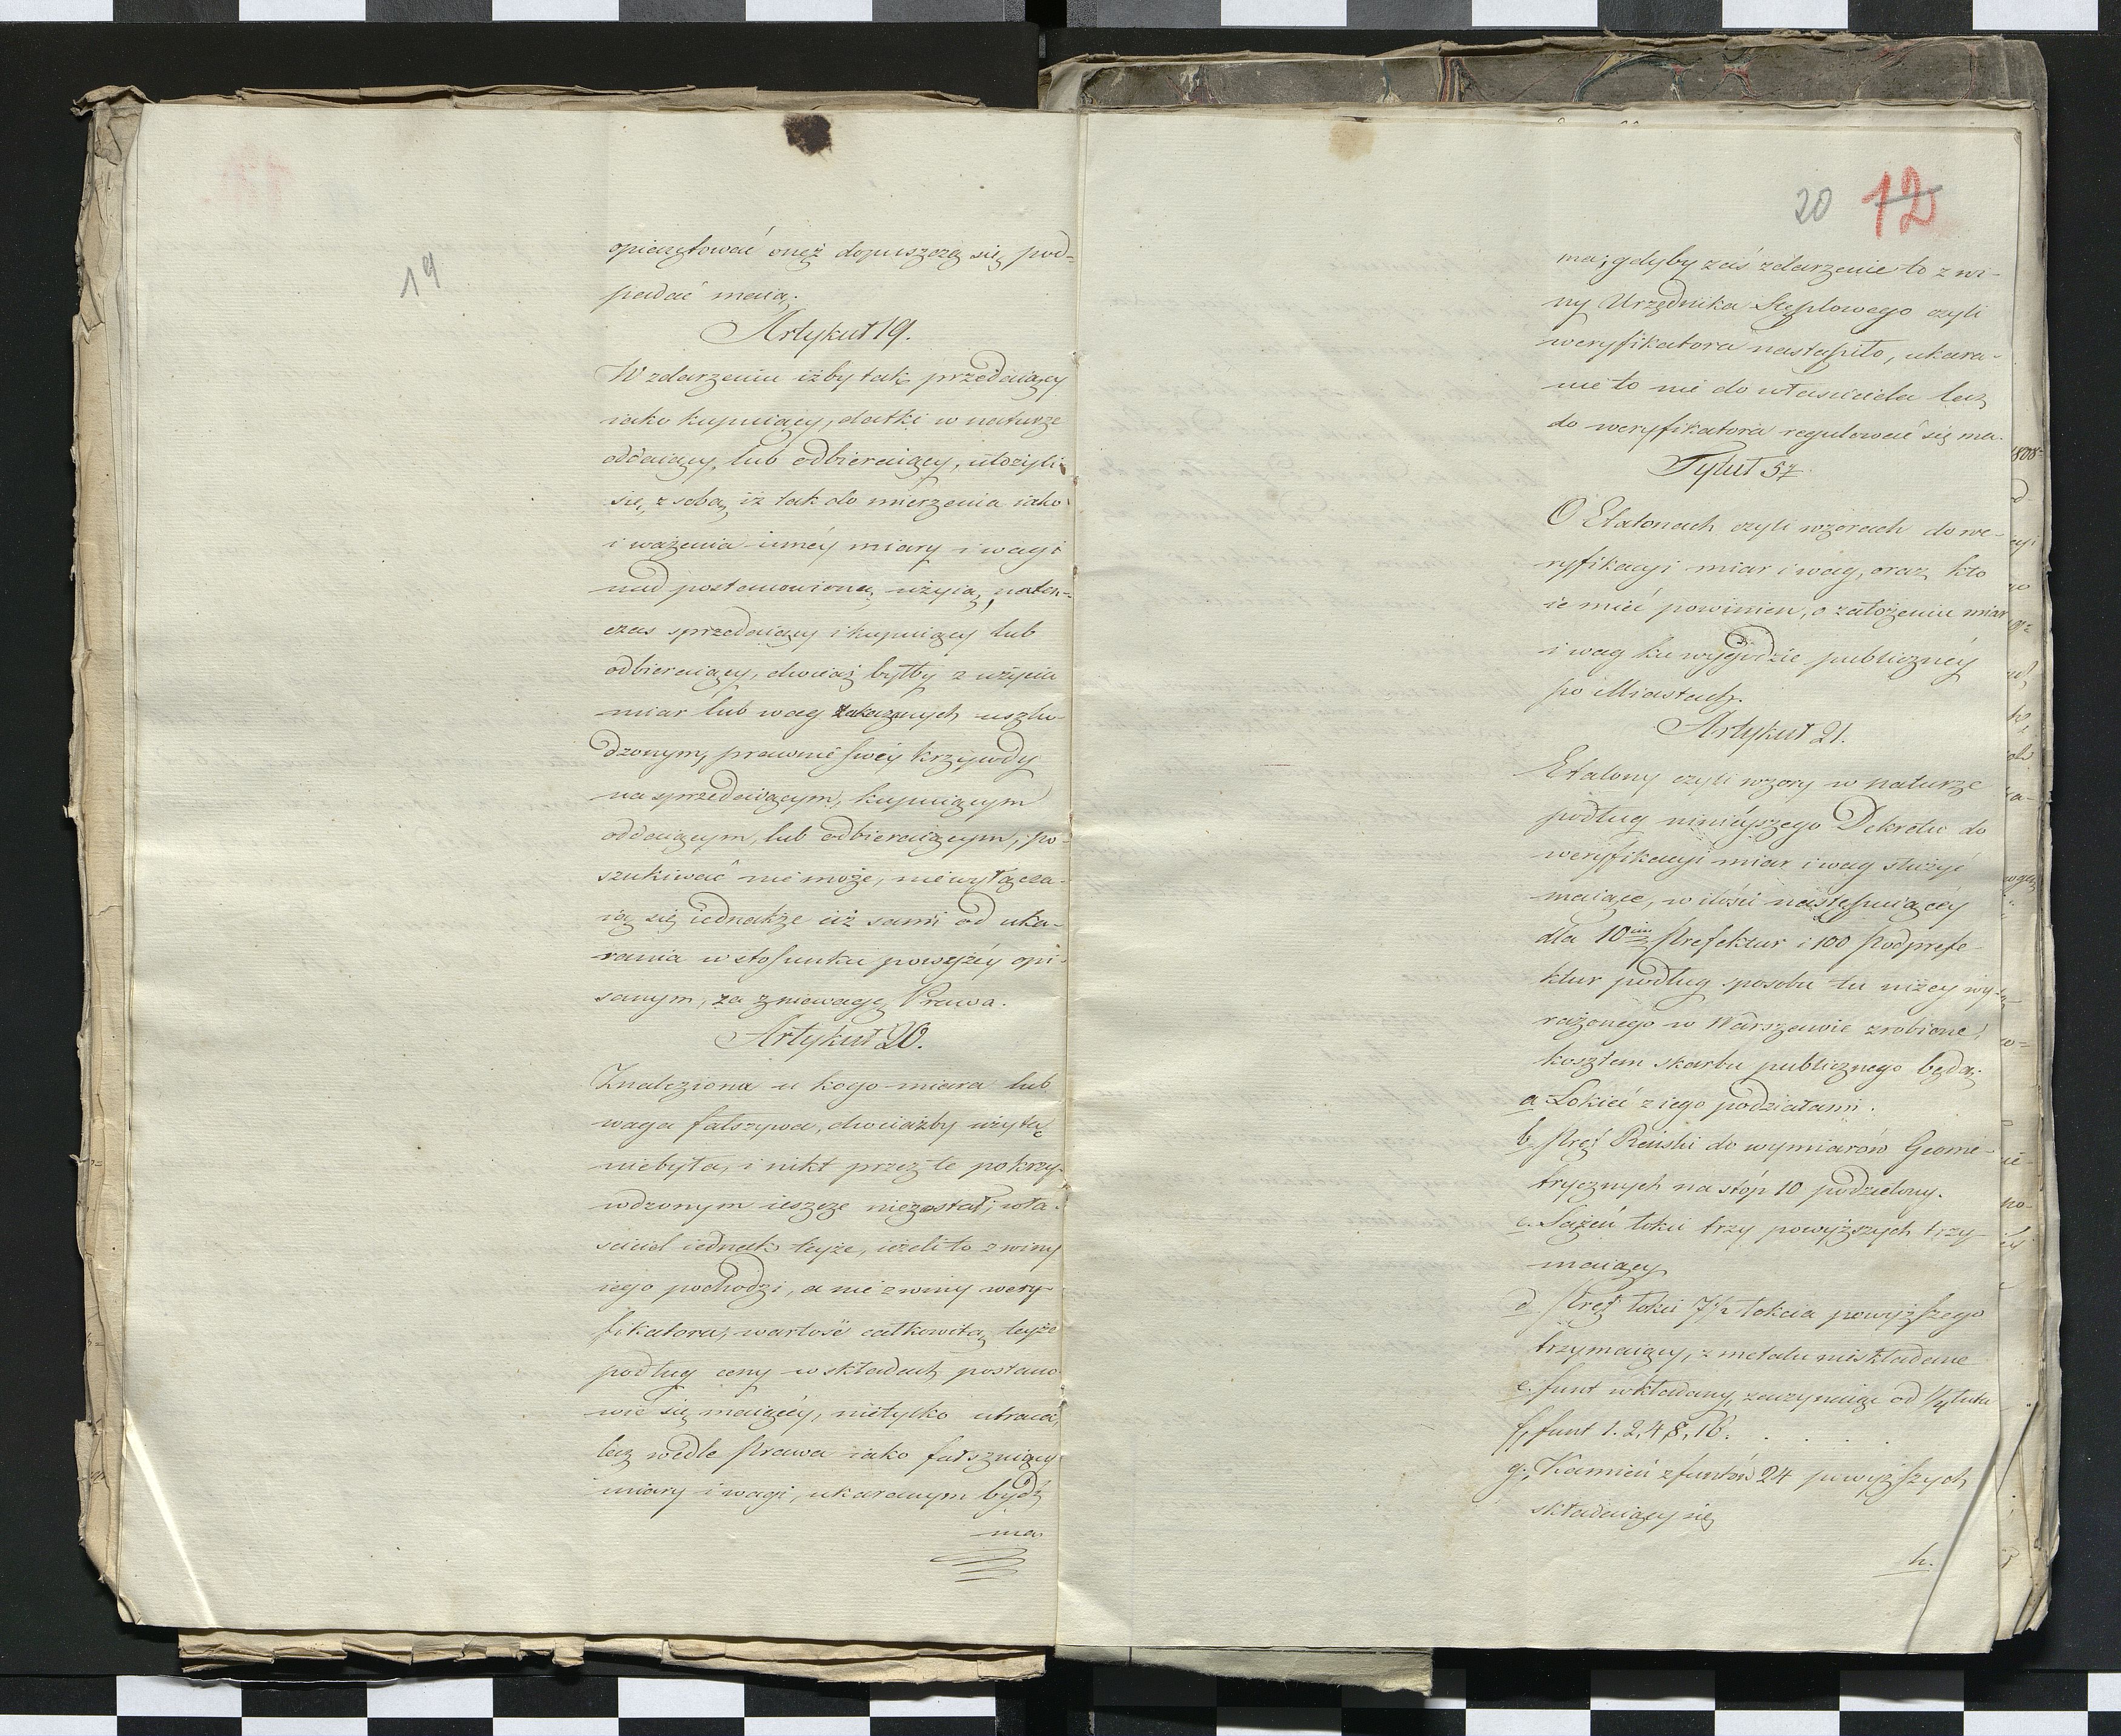 19
opieczętować onęż dopuszczą się, pod-
padać maią.
Artykuł 19.
W zdarzeniu iżby tak przedaiący
iako kupuiący, datki w naturze
oddaiący, lub odbieraiący, ułożyli
się, z sobą, iż tak do mierzenia iako
i ważenia innéy miary i wagi
nad postanowioną użyią, naten-
czas sprzedaiący i kupuiący lub
odbieraiący, chociaż byłby z użycia
miar lub wag zakazanych uszko-
dzonym, prawnie swéy krzywdy
na sprzedaiącym, kupuiącym
oddaiącym, lub odbieraiącym, po-
szukiwać nie może, nie wyłącza-
ią się iednakże ciż sami od uka-
rania w stosunku powyżéy opi-
sanym, za zniewagę Prawa.
Artykuł 20.
Znaleziona u kogo miara lub
waga fałszywa, chociażby użytą
niebyła, i nikt przez te pokrzy-
wdzonym ieszcze niezostał, wła-
ściciel iednak teyże, ieżeli to z winy
iego pochodzi, a nie z winy wery-
fikatora, wartość całkowitą teyże
podług ceny w składach postano-
wić się maiącéy, nietylko utraca,
lecz wedle Prawa iako fałszuiący
miary i wagi, ukaranym bydź
ma
20 12
ma; gdyby zaś zdarzenie to z wi-
ny Urzędnika Stęplowego czyli
weryfikatora nastąpiło, ukara-
nie to nie do właściciela lecz
do weryfikatora regulować się ma.
Tytuł 5ty
O Etalonach czyli wzorach do we-
ryfikacyi miar i wag, oraz kto
ie mieć powinien, o założeniu miar
i wag ku wygodzie publicznéy
po Miastach.
Artykuł 21.
Etalony czyli wzory w naturze
podług ninieyszego Dekretu do
weryfikacyi miar i wag służyć
maiące, w ilości następuiącéy
dla 10ciu Prefektur i 100 Podprefe-
ktur podług sposobu tu niżéy wy-
rażonego w Warszawie zrobione,
kosztem skarbu publicznego będą.
a Łokieć z iego podziałami.
b. Pręt Reński do wymiarów Geome-
trycznych na stóp 10 podzielony.
c. Sążeń łokci trzy powyższych trzy-
maiący
d. Pręt łokci 7½ łokcia powyższego
trzymaiący, z metalu nieskładane
e. funt wkładany, zaczynaiąc od ¼ łuta
f, funt 1. 2, 4, 8, 16. . . .
g., Kamień z funtów 24 powyższych
składaiący się
h.